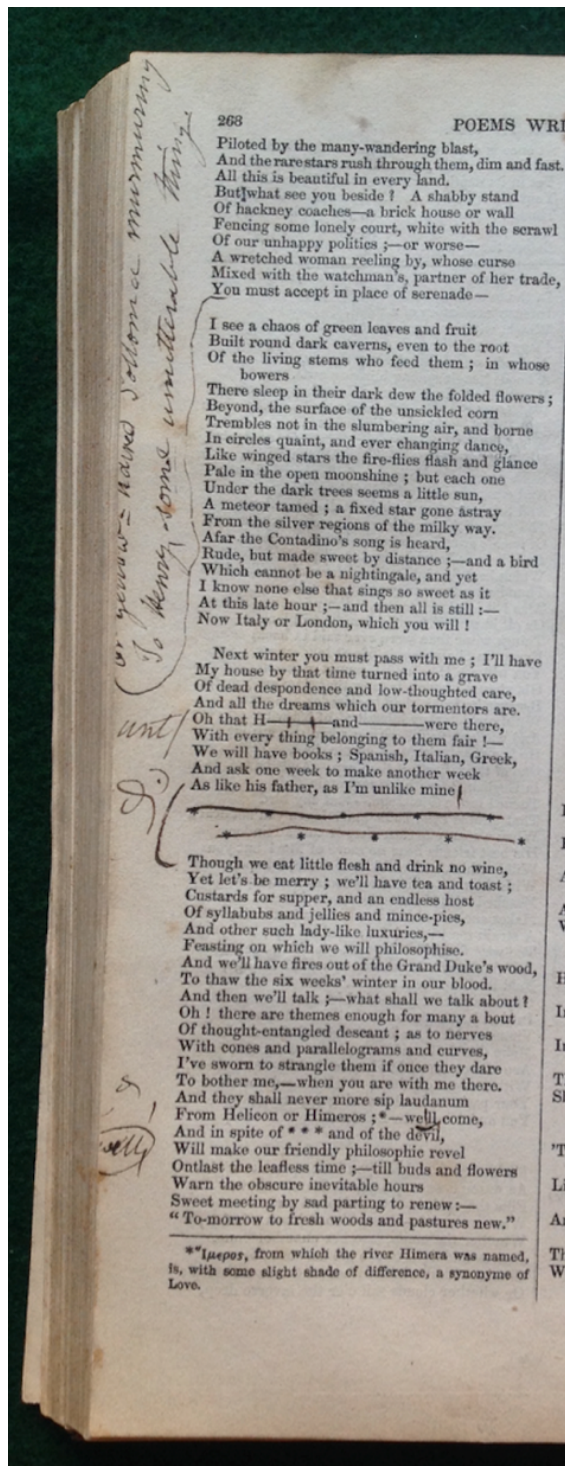 268 POEMS WRI
Piloted by the many-wandering blast,
And the rare stars rush through them, dim and fast.
All this is beautiful in every land.
But what see you beside ? A shabby stand
Of hackney coaches—a brick house or wall
Fencing some lonely court, white with the scrawl
Of our unhappy politics ;—or worse—
A wretched woman reeling by, whose curse
Mixed with the watchman's, partner of her trade,
You must accept in place of serenade—
I see a chaos of green leaves and fruit
Built round dark caverns, even to the root
Of the living stems who feed them ; in whose
bowers
There sleep in their dark dew the folded flowers ;
Beyond, the surface of the unsickled corn
Trembles not in the slumbering air, and borne
In circles quaint, and ever changing dance,
Like winged stars the fire-flies flash and glance
Pale in the open moonshine ; but each one
Under the dark trees seems a little sun,
A meteor tamed ; a fixed star gone astray
From the silver regions of the milky way.
Afar the Contadino's song is heard,
Rude, but made sweet by distance ;—and a bird
Which cannot be a nightingale, and yet
I know none else that sings so sweet as it
At this late hour ;—and then all is still :—
Now Italy or London, which you will !
Next winter you must pass with me ; I'll have
My house by that time turned into a grave
Of dead despondence and low-thought​ed care,
And all the dreams which our tormentors are.
Oh that H—— and ——were there,
With every thing belonging to them fair !—
We will have books ; Spanish, Italian, Greek,
And ask one week to make another week
As like his father, as I'm unlike mine
* * * * *
* * * * *
Though we eat little flesh and drink no wine,
Yet let's be merry ; we'll have tea and toast ;
Custards for supper, and an endless host
Of syllabubs and jellies and mince-pies,
And other such lady-like luxuries,—
Feasting on which we will philosophise.
And we'll have fires out of the Grand Duke's wood,
To thaw the six weeks' winter in our blood.
And then we'll talk ;—what shall we talk about ?
Oh ! there are themes enough for many a bout
Of thought-entangled descant ; as to nerves
With cones and parallelograms and curves,
I've sworn to strangle them if once they dare
To bother me,—when you are with me there.
And they shall never more sip laudanum
From Helicon or Himeros ;*—we'll come,
And in spite of * * * and of the devil,
Will make our friendly philosophic revel
Outlast the leafless time ;—till buds and flowers
Warn the obscure inevitable hours
Sweet meeting by sad parting to renew :—
"To-morrow to fresh woods and pastures new."
*Ἵμερος, from which the river Himera was named,
is, with some slight shade of difference, a synonyme of
Love.
or yellow-haired Pollonia murmuring
To Henry, some unutterable thing.